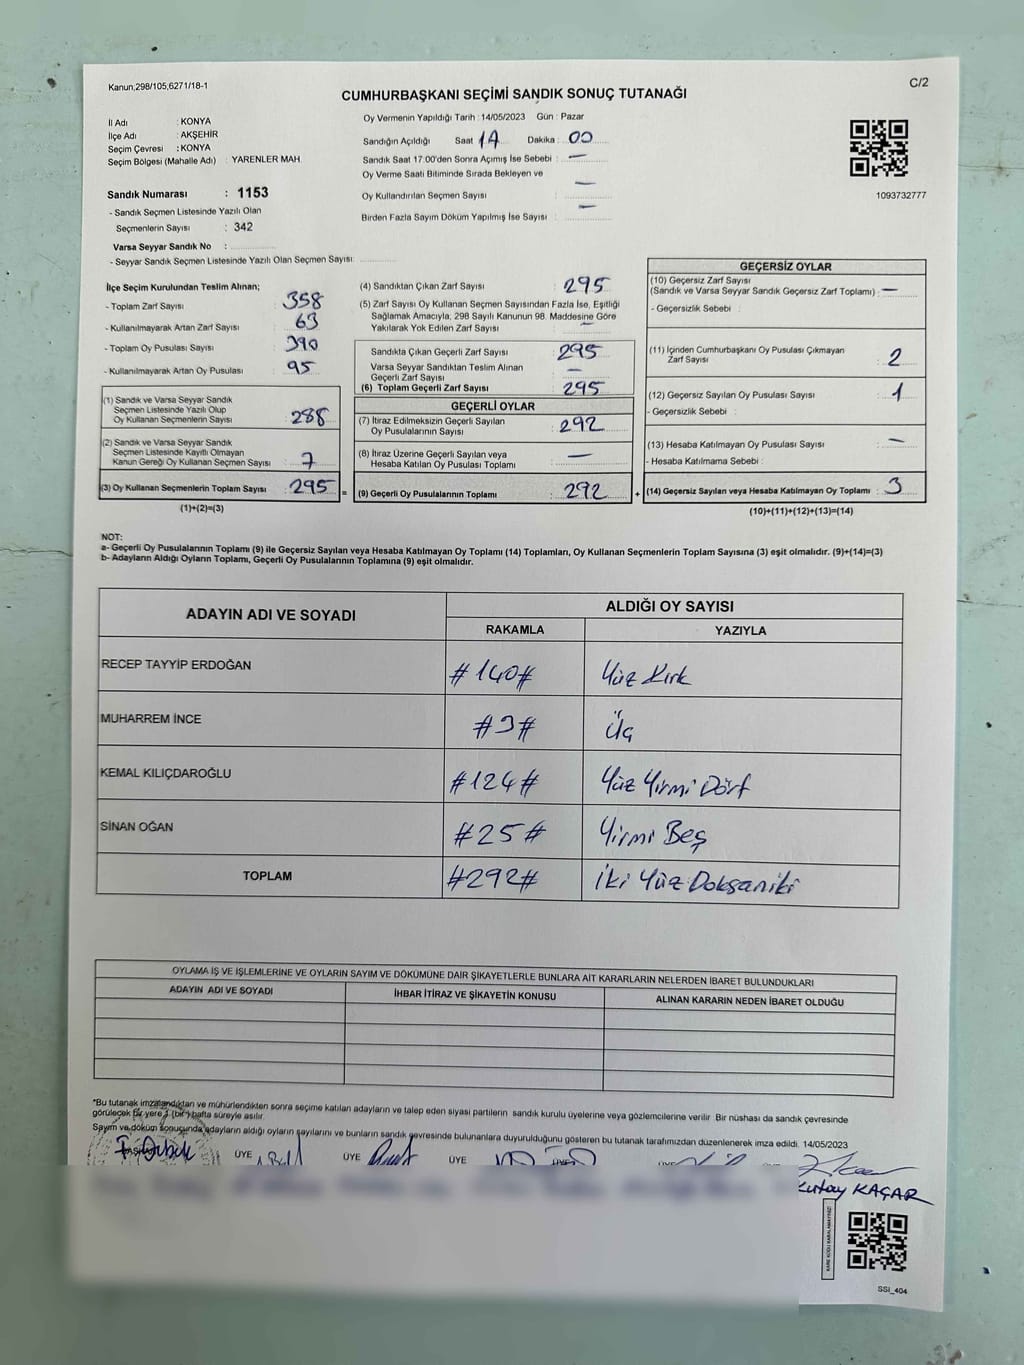 Kanun;298/105;6271/18-1
C/2
CUMHURBAŞKANI SEÇİMİ SANDIK SONUÇ TUTANAĞI
İl Adı : KONYA
İlçe Adı : AKŞEHİR
Seçim Çevresi : KONYA
Seçim Bölgesi (Mahalle Adı) : YARENLER MAH.
Sandık Numarası : 1153
- Sandık Seçmen Listesinde Yazılı Olan
Seçmenlerin Sayısı : 342
Varsa Seyyar Sandık No :
- Seyyar Sandık Seçmen Listesinde Yazılı Olan Seçmen Sayısı:
Oy Vermenin Yapıldığı Tarih : 14/05/2023 Gün : Pazar
Sandığın Açıldığı Saat 17 Dakika : 00
Sandık Saat 17:00'den Sonra Açımış İse Sebebi : —
Oy Verme Saati Bitiminde Sırada Bekleyen ve
Oy Kullandırılan Seçmen Sayısı : —
Birden Fazla Sayım Döküm Yapılmış İse Sayısı : —
1093732777
İlçe Seçim Kurulundan Teslim Alınan;
- Toplam Zarf Sayısı : 358
- Kullanılmayarak Artan Zarf Sayısı : 63
- Toplam Oy Pusulası Sayısı : 390
- Kullanılmayarak Artan Oy Pusulası : 95
(1) Sandık ve Varsa Seyyar Sandık
Seçmen Listesinde Yazılı Olup
Oy Kullanan Seçmenlerin Sayısı : 288
(2) Sandık ve Varsa Seyyar Sandık
Seçmen Listesinde Kayıtlı Olmayan
Kanun Gereği Oy Kullanan Seçmen Sayısı : 7
(3) Oy Kullanan Seçmenlerin Toplam Sayısı : 295
(1)+(2)=(3)
(4) Sandıktan Çıkan Zarf Sayısı : 295
(5) Zarf Sayısı Oy Kullanan Seçmen Sayısından Fazla İse, Eşitliği
Sağlamak Amacıyla, 298 Sayılı Kanunun 98. Maddesine Göre
Yakılarak Yok Edilen Zarf Sayısı : —
Sandıkta Çıkan Geçerli Zarf Sayısı : 295
Varsa Seyyar Sandıktan Teslim Alınan
Geçerli Zarf Sayısı : —
(6) Toplam Geçerli Zarf Sayısı : 295
GEÇERLİ OYLAR
(7) İtiraz Edilmeksizin Geçerli Sayılan
Oy Pusulalarının Sayısı : 292
(8) İtiraz Üzerine Geçerli Sayılan veya
Hesaba Katılan Oy Pusulası Toplamı : —
= (9) Geçerli Oy Pusulalarının Toplamı : 292
GEÇERSİZ OYLAR
(10) Geçersiz Zarf Sayısı
(Sandık ve Varsa Seyyar Sandık Geçersiz Zarf Toplamı) : —
- Geçersizlik Sebebi :
(11) İçinden Cumhurbaşkanı Oy Pusulası Çıkmayan
Zarf Sayısı : 2
(12) Geçersiz Sayılan Oy Pusulası Sayısı : 1
- Geçersizlik Sebebi :
(13) Hesaba Katılmayan Oy Pusulası Sayısı : —
- Hesaba Katılmama Sebebi :
+ (14) Geçersiz Sayılan veya Hesaba Katılmayan Oy Toplamı : 3
(10)+(11)+(12)+(13)=(14)
NOT:
a- Geçerli Oy Pusulalarının Toplamı (9) ile Geçersiz Sayılan veya Hesaba Katılmayan Oy Toplamı (14) Toplamları, Oy Kullanan Seçmenlerin Toplam Sayısına (3) eşit olmalıdır. (9)+(14)=(3)
b- Adayların Aldığı Oyların Toplamı, Geçerli Oy Pusulalarının Toplamına (9) eşit olmalıdır.
ADAYIN ADI VE SOYADI
ALDIĞI OY SAYISI
RAKAMLA YAZIYLA
RECEP TAYYİP ERDOĞAN #140# Yüz Kırk
MUHARREM İNCE #3# Üç
KEMAL KILIÇDAROĞLU #124# Yüz Yirmi Dört
SİNAN OĞAN #25# Yirmi Beş
TOPLAM #292# İki Yüz Doksaniki
OYLAMA İŞ VE İŞLEMLERİNE VE OYLARIN SAYIM VE DÖKÜMÜNE DAİR ŞİKAYETLERLE BUNLARA AİT KARARLARIN NELERDEN İBARET BULUNDUKLARI
ADAYIN ADI VE SOYADI İHBAR İTİRAZ VE ŞİKAYETİN KONUSU ALINAN KARARIN NEDEN İBARET OLDUĞU
*Bu tutanak imzalandıktan ve mühürlendikten sonra seçime katılan adayların ve talep eden siyasi partilerin sandık kurulu üyelerine veya gözlemcilerine verilir. Bir nüshası da sandık çevresinde
görülecek bir yere 1 (bir) hafta süreyle asılır.
Sayım ve döküm sonucunda adayların aldığı oyların sayılarını ve bunların sandık çevresinde bulunanlara duyurulduğunu gösteren bu tutanak tarafımızdan düzenlenerek imza edildi. 14/05/2023
ÜYE ÜYE ÜYE ÜYE
Kutay KAÇAR
SSI_404